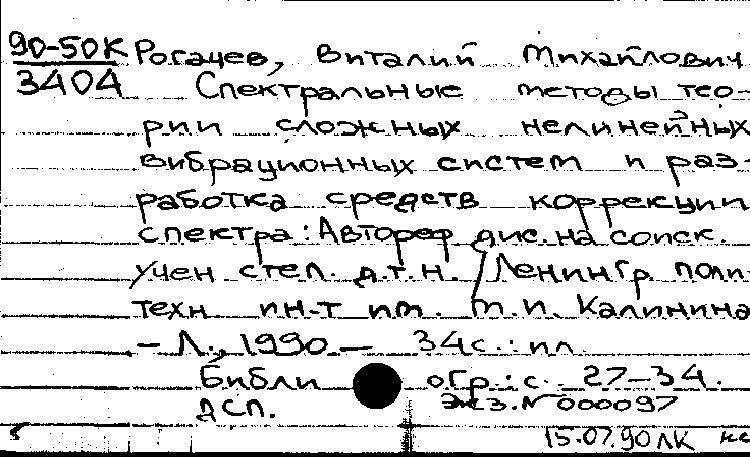 90-50К Рогачев, Виталий Михайлович
3404 Спектральные методы тео-
рии сложных нелинейных
вибрационных систем и раз-
работка средств коррекции
спектра: Автореф дис. на соиск.
учен степ. д.т.н. / Ленингр. поли-
техн ин-т им. М.И. Калинина
- Л., 1990. - 34 с.: ил.
Библиогр.: с. 27-34.
ДСП. Экз. № 000097
15.07.90 ЛК нс